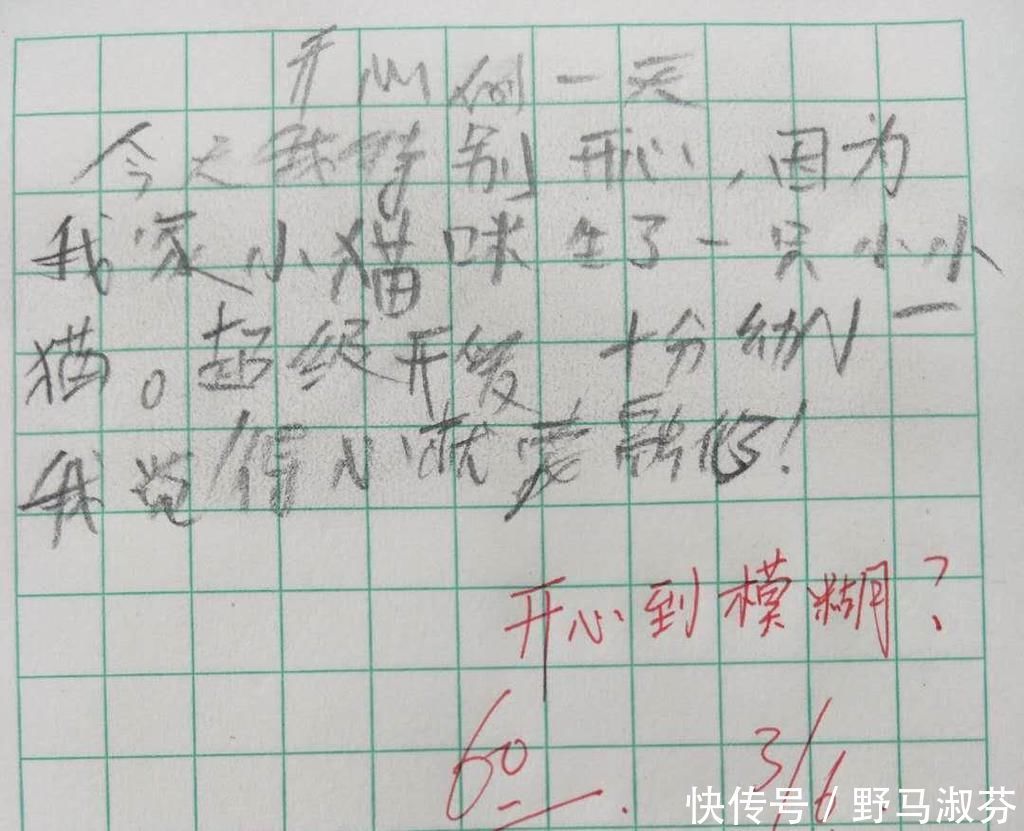 开心的一天
今天我特别开心,因为
我家小猫咪生了一只小小
猫。超级可爱 十分幼小一
我觉得心就要融化!
开心到模糊?
60 3/6
快传号 / 野马淑芬